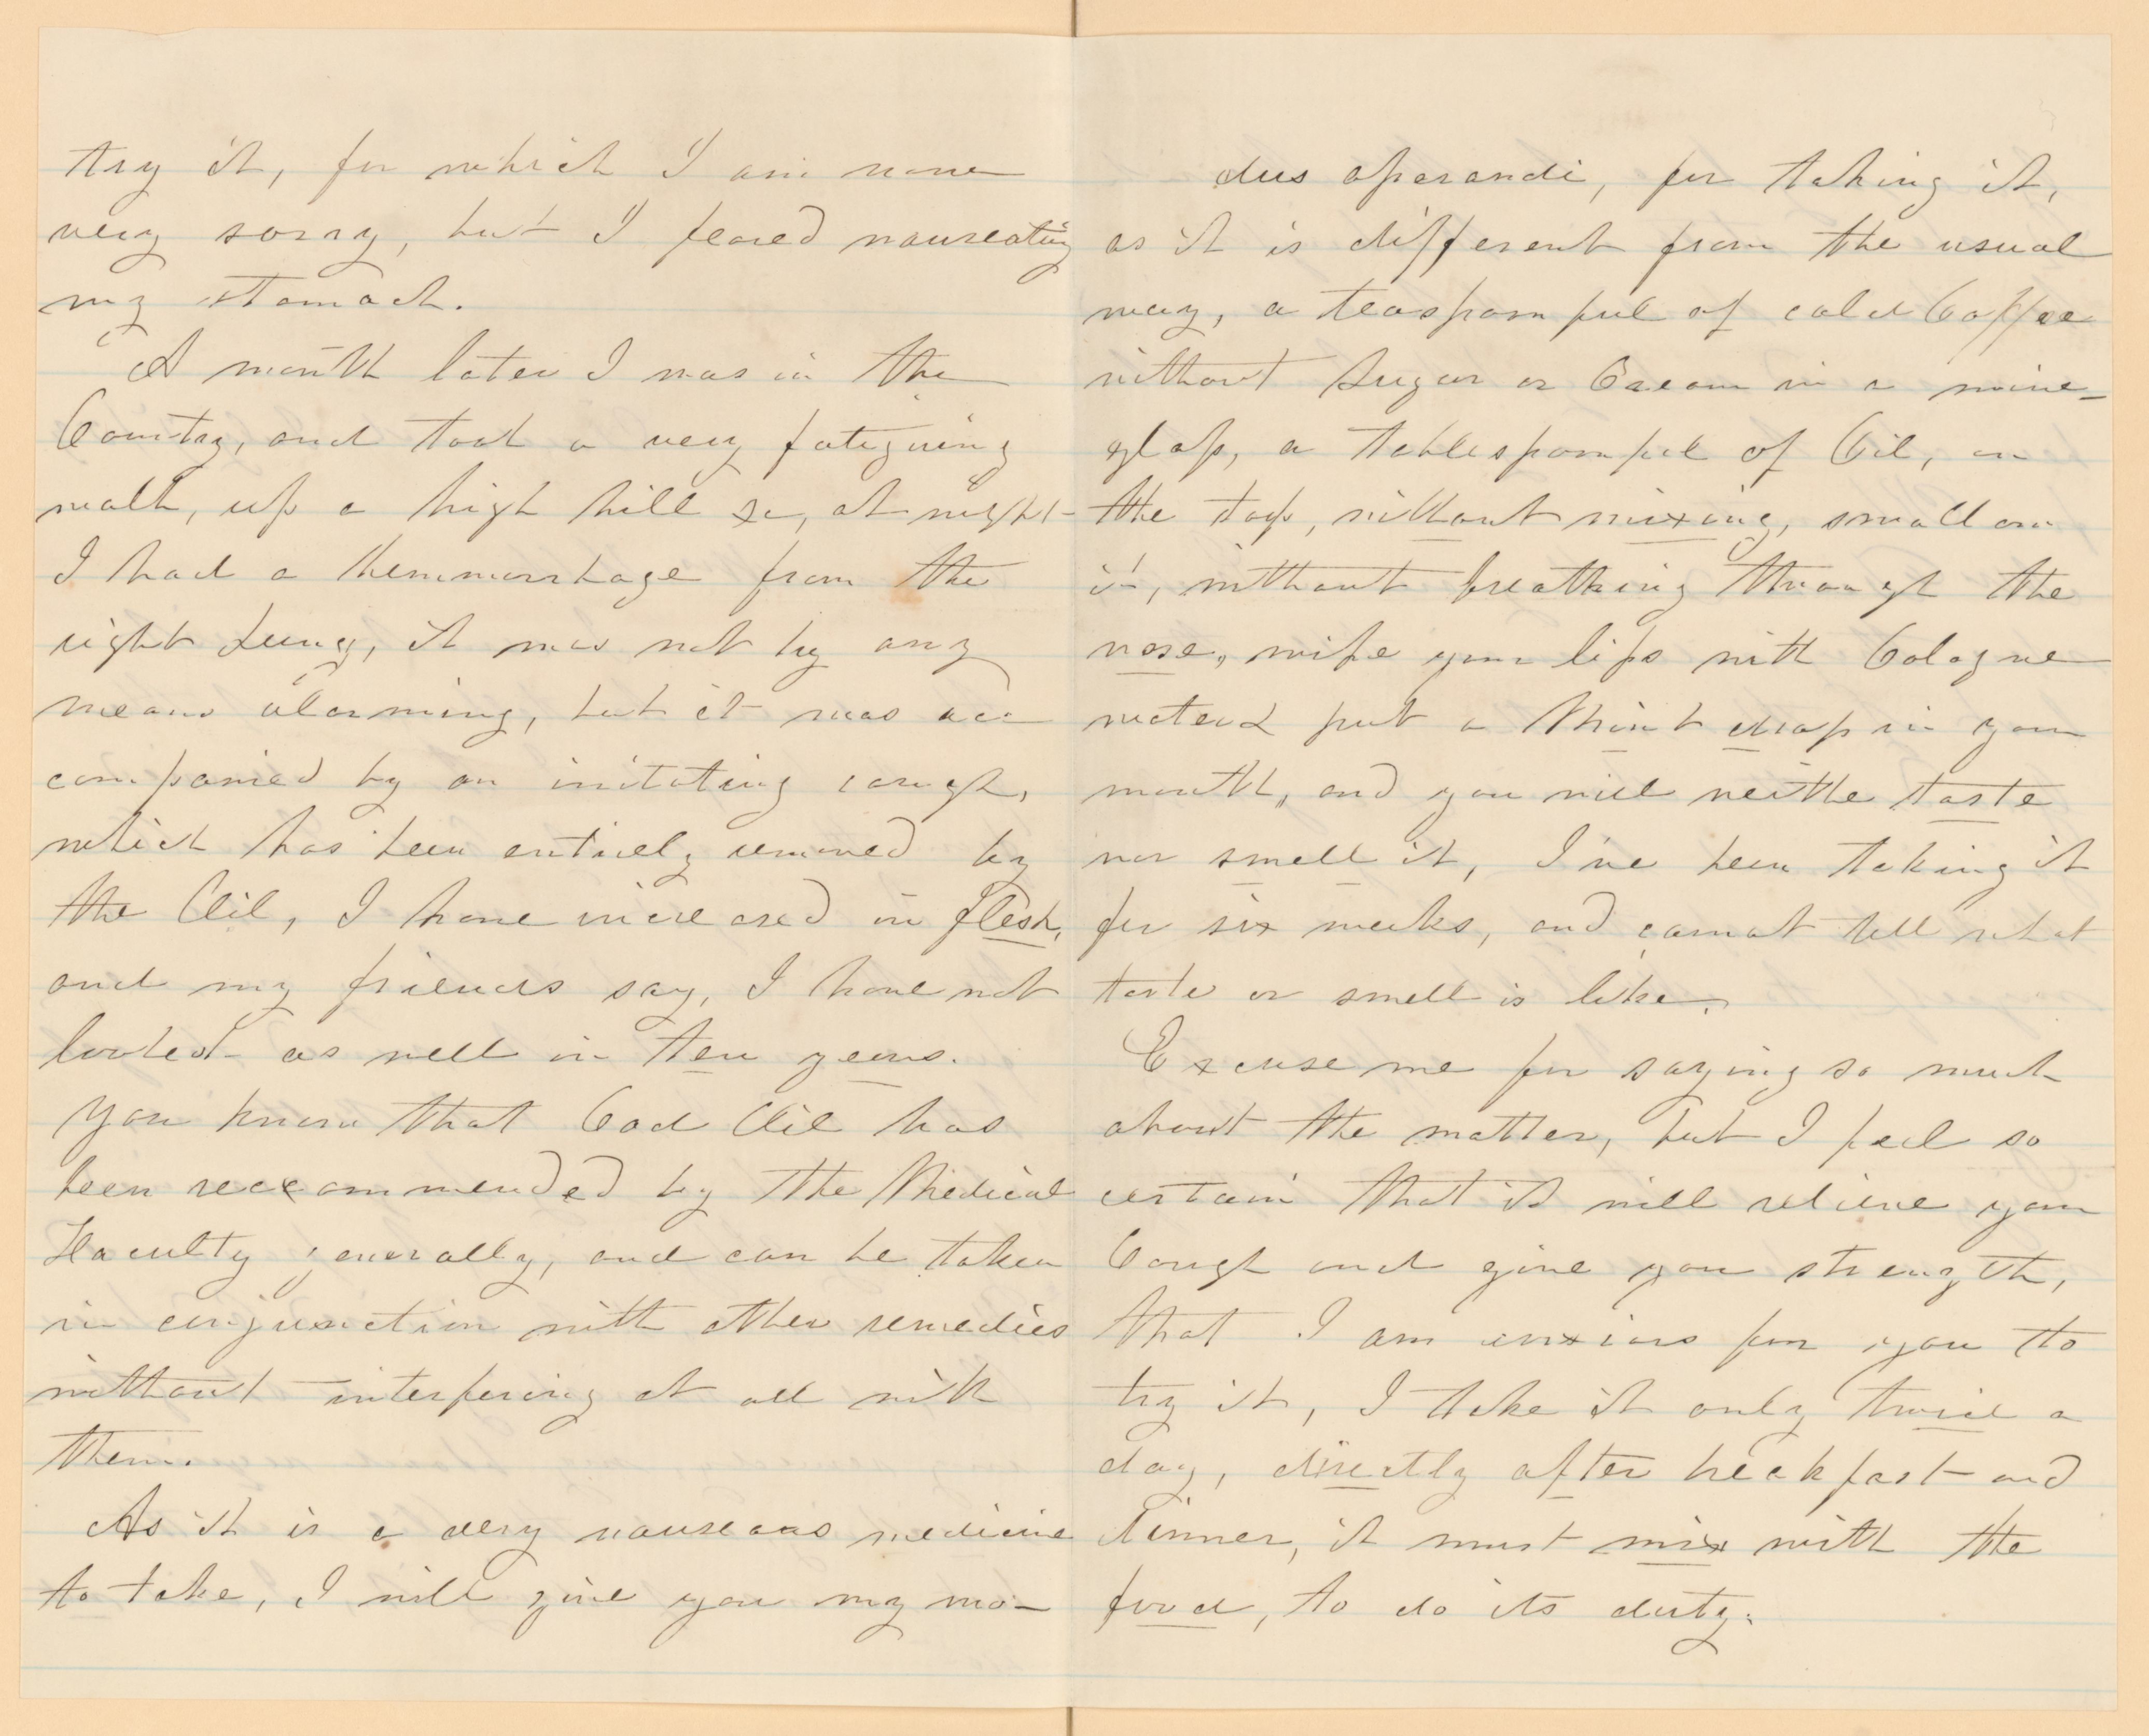 try it, for which I am now
very sorry, but I feared nauseating
my stomach.
A month later I was in the
Country, and took a very fatiguing
walk, up a high hill &c, at night
I had a hemmorrhage from the
right Lung, it was not by any
means alarming, but it was acc
companied by an irritating cough,
which has been entirely removed by
the Oil, I have increased in flesh,
and my friends say, I have not
looked as well in ten years.
You know that Cod Oil has
been reccommended by the Medical
Faculty generally, and can be taken
in conjunction with other remedies
without interfering at all with
them.
As it is a very nauseous medicine
to take, I will give you my mo-
dus operandi, for taking it,
as it is different from the usual
way, a teaspoonful of cold Coffee
without Sugar or Cream in a wine-
glass, a tablespoonful of Oil, on
the top, without mixing, swallow
it, without breathing through the
nose, wipe your lips with Cologne
water & put a Mint drop in your
mouth, and you will neithe taste
nor smell it, I've been taking it
for six weeks, and cannot tell what
taste or smell is like.
Excuse me for saying so much
about the matter, but I feel so
certain that it will relieve your
Cough and give you strength,
that I am anxious for you to
try it, I take it only twice a
day, directly after breakfast and
dinner, it must mix with the
food, to do its duty.